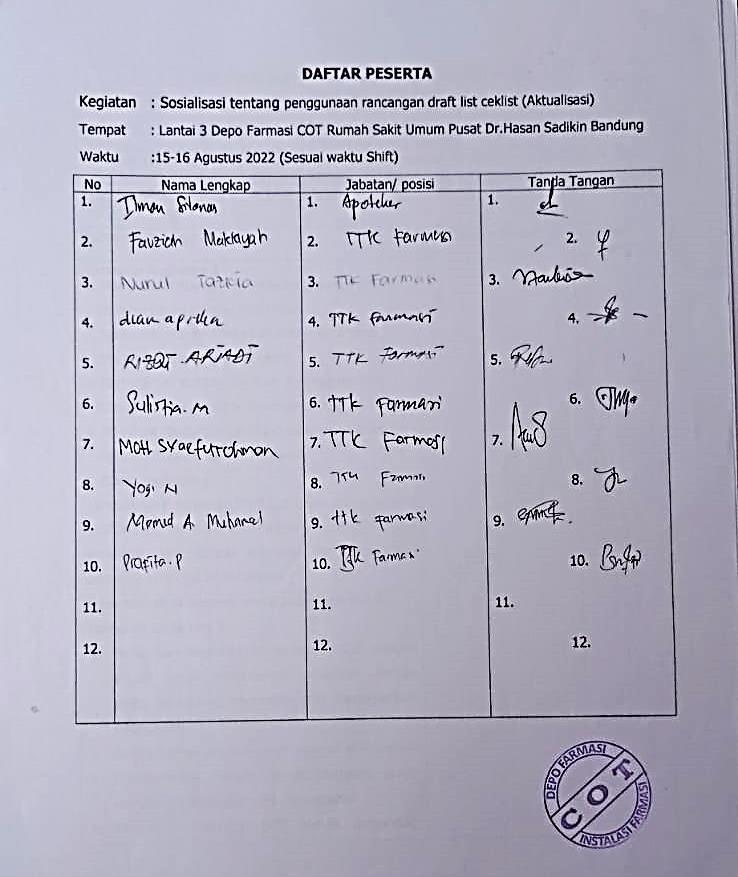 DAFTAR PESERTA
Kegiatan : Sosialisasi tentang penggunaan rancangan draft list ceklist (Aktualisasi)
Tempat : Lantai 3 Depo Farmasi COT Rumah Sakit Umum Pusat Dr.Hasan Sadikin Bandung
Waktu :15-16 Agustus 2022 (Sesuai waktu Shift)
No Nama Lengkap Jabatan/ posisi Tanda Tangan
1. 1. Apoteker 1.
2. Fauziah 2. TTK Farmasi 2.
3. Nurul Tazkia 3. TTK Farmasi 3.
4. dian aprilia 4. TTK farmasi 4.
5. RIZQI ARIADI 5. TTK Farmasi 5.
6. Sulistia. M 6. TTK farmasi 6.
7. MOH SYaefurohman 7. TTK Farmasi 7.
8. Yogi N 8. TTK Farmasi 8.
9. A. 9. ttk farmasi 9.
10. Prafita. P 10. TTK Farmasi 10.
11. 11. 11.
12. 12. 12.
DEPO FARMASI
COT
INSTALASI FARMASI